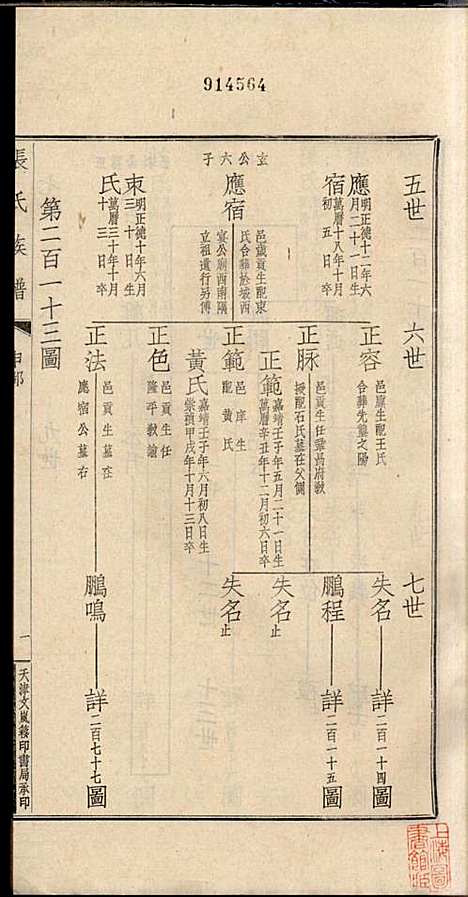 914564
五世
六世
七世
玄公六子
應宿
邑歲貢生配束
氏合葬於城西
宴公廟西南隅
立祖遺行另傳
應宿
明正德十二年六
月二十一日生
萬曆十八年十月
初五日卒
束氏
明正德十年六月
三十日生
萬曆三十年十月
十三日卒
正容
邑庠生配王氏
合葬先塋之陽
正脉
邑貢生任鞏昌府教
授配石氏墓在父側
正範
嘉靖壬子年五月二十一日生
萬曆辛丑年十二月初六日卒
正範
邑庠生
配黃氏
黃氏
嘉靖壬子年六月初八日生
崇禎甲戌年十月十三日卒
正色
邑貢生任
隆平教諭
正法
邑貢生墓在
應宿公墓右
失名
詳二百一十四圖
鵬程
詳二百一十五圖
失名止
失名止
鵬鳴
詳二百七十七圖
第二百一十三圖
張氏族譜
申部
一
天津文嵐簃印書局承印
上海圖書館藏